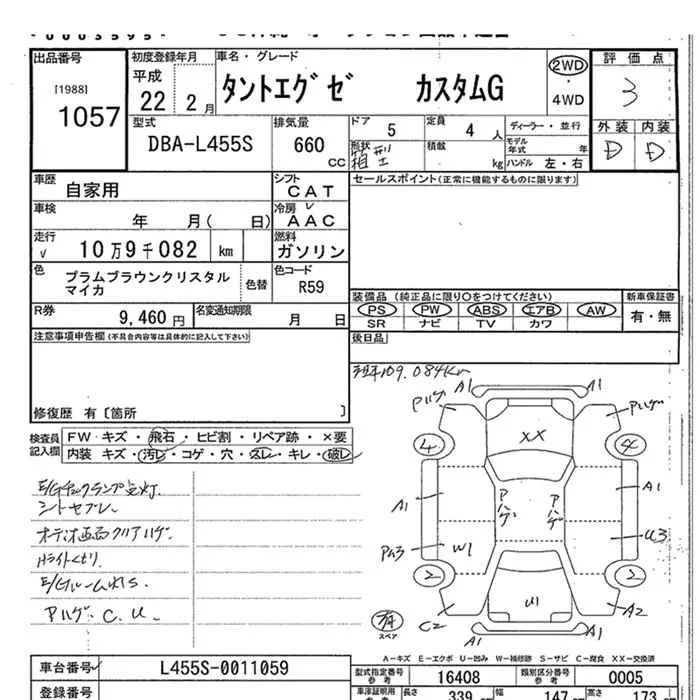 出品番号
[1988]
1057
初度登録年月
平成
22年 2月
車名・グレード
タントエグゼ カスタムG
2WD
・
4WD
評価点
3
外装 内装
D D
型式
DBA-L455S
排気量
660 cc
ドア 5
定員 4 人
ディーラー・並行
モデル年式 年
形状 箱型
積載 kg
ハンドル 左・右
車歴 自家用
シフト CAT
セールスポイント(正常に機能するものに限ります)
車検 年 月( 日)
冷房 AAC
走行 10万9千082 km
燃料 ガソリン
色 プラムブラウンクリスタルマイカ
色替
色コード R59
R券 9,460円
名変通知期限 月 日
装備品(純正品に限り〇をつけてください)
新車保証書
PS PW ABS エアB AW
有・無
SR ナビ TV カワ
注意事項申告欄(不具合内容等は具体的に記入して下さい)
後日品
109.084Km
修復歴 有〔箇所 〕
検査員記入欄
FW キズ・飛石・ヒビ割・リペア跡・×要
内装 キズ・汚レ・コゲ・穴・スレ・キレ・破レ
E/Gチェックランプ点灯.
シートヨゴレ.
オーディオ画面クリアハゲ.
Hライトくもり.
E/Gルーム
Pハゲ. C. U.
A1 A1
Pハゲ Pハゲ
XX
4 4
A1 A1
Pハゲ Pハゲ
U3
W1
2 2
U1
C2 A2
A1 A1
スペア
A-キズ E-エクボ U-凹み W-補修跡 S-サビ C-腐食 XX-交換済
車台番号 L455S-0011059
型式指定番号 参考 16408
類別区分番号 参考 0005
登録番号
車庫証明用 長さ 339 幅 147 高さ 173